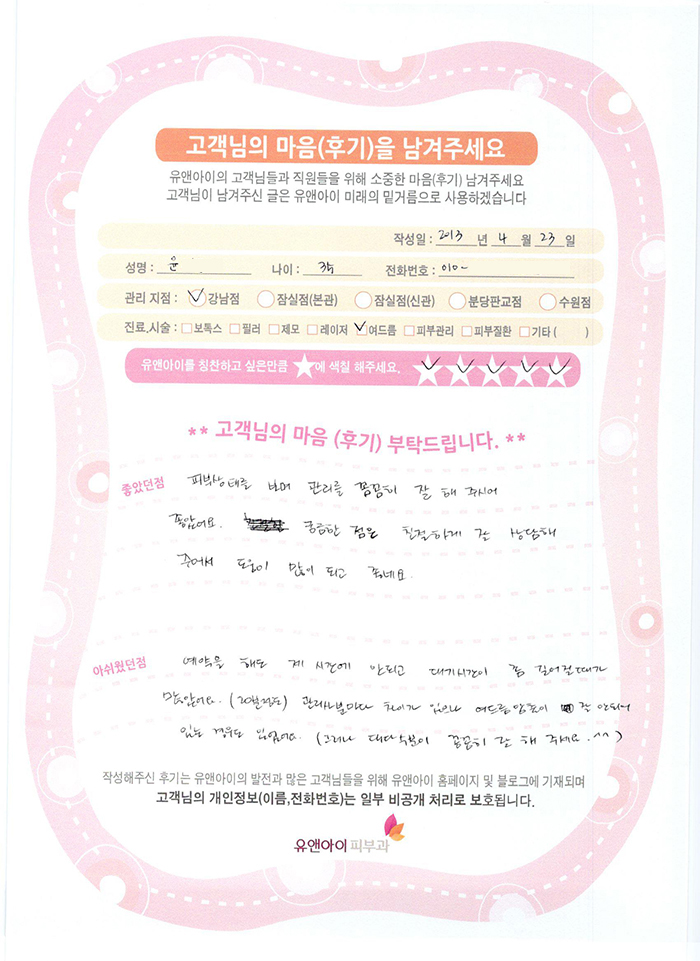 고객님의 마음(후기)을 남겨주세요
유앤아이의 고객님들과 직원들을 위해 소중한 마음(후기) 남겨주세요
고객님이 남겨주신 글은 유앤아이 미래의 밑거름으로 사용하겠습니다
작성일 : 2013 년 4 월 23 일
성명 : 윤 나이 : 전화번호 : 010-
관리 지점 : 강남점 잠실점(본관) 잠실점(신관) 분당판교점 수원점
진료.시술 : 보톡스 필러 제모 레이저 여드름 피부관리 피부질환 기타 ( )
유앤아이를 칭찬하고 싶은만큼 ★에 색칠 해주세요. ★★★★★
** 고객님의 마음 (후기) 부탁드립니다. **
좋았던점 피부상태를 보며 관리를 꼼꼼히 잘 해 주시어
좋았어요. 궁금한 점은 친절하게 잘 상담해
주어서 도움이 많이 되고 좋네요.
아쉬웠던점 예약을 해도 제 시간에 안되고 대기시간이 좀 길어질때가
많았어요. (20분정도) 관리사분마다 차이가 있으나 여드름 압출이 잘 안되어
있는 경우도 있었어요. (그러나 대다수분이 꼼꼼히 잘 해 주세요.^^)
작성해주신 후기는 유앤아이의 발전과 많은 고객님들을 위해 유앤아이 홈페이지 및 블로그에 기재되며
고객님의 개인정보(이름,전화번호)는 일부 비공개 처리로 보호됩니다.
유앤아이피부과